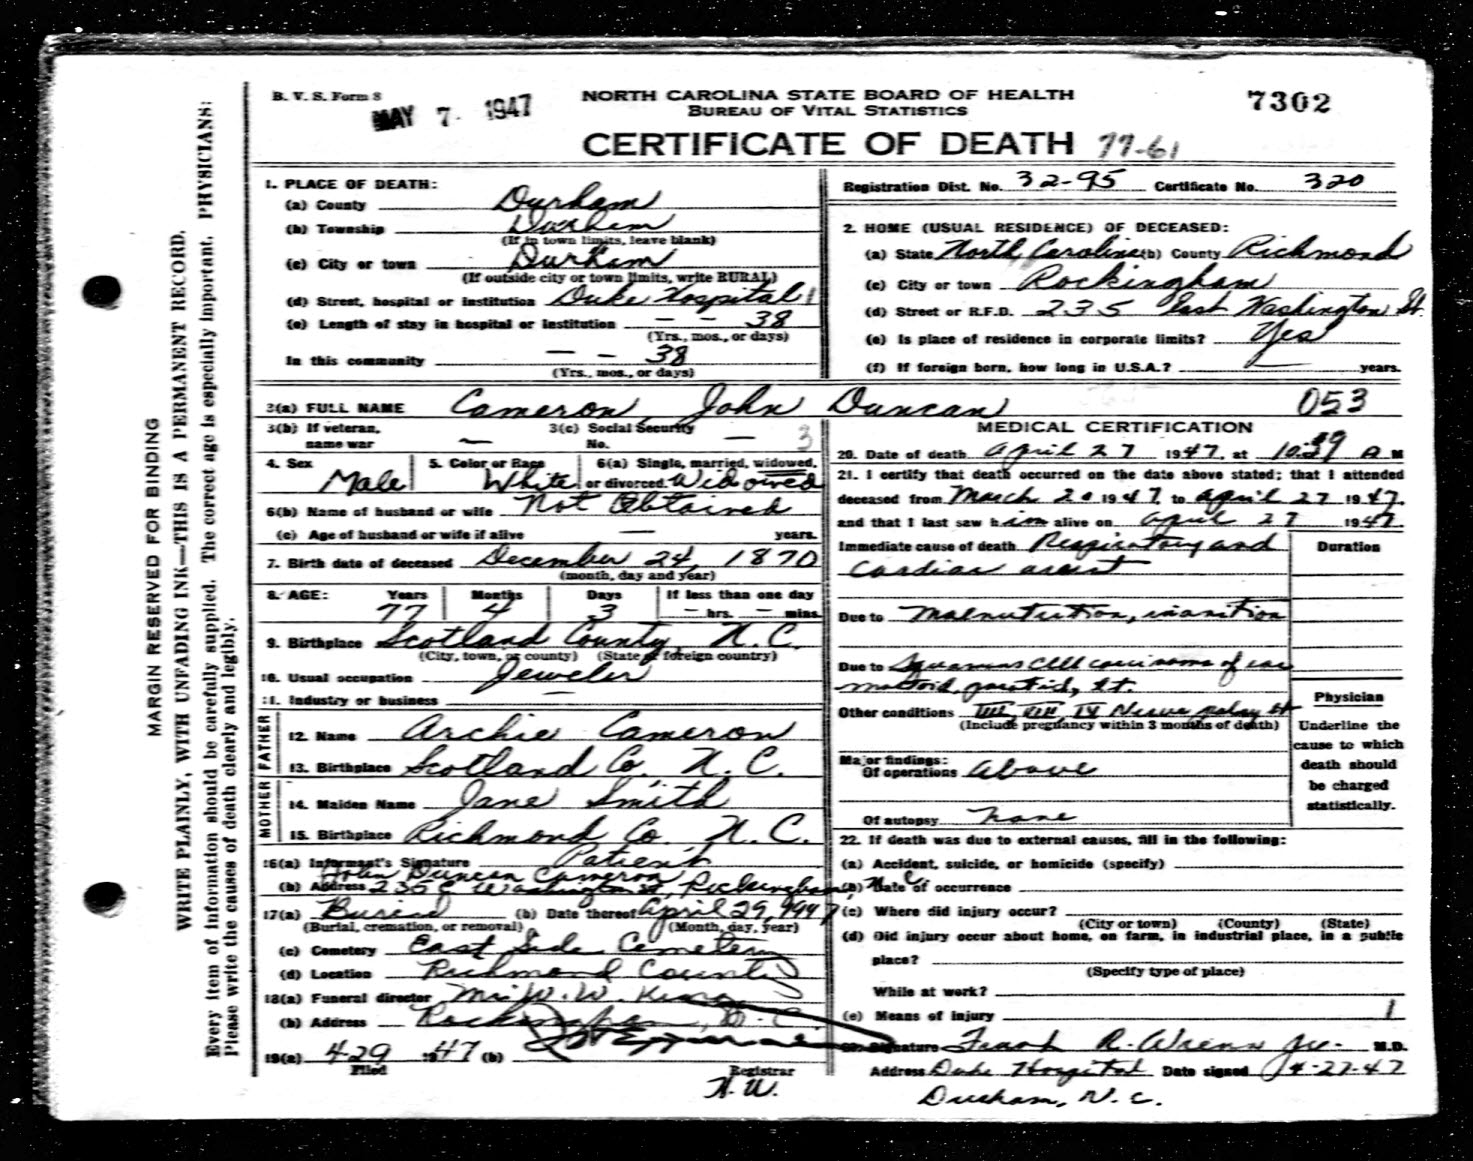 B. V. S. Form 8
MAY 7 1947
NORTH CAROLINA STATE BOARD OF HEALTH
BUREAU OF VITAL STATISTICS
7302
CERTIFICATE OF DEATH 77-61
MARGIN RESERVED FOR BINDING
WRITE PLAINLY, WITH UNFADING INK—THIS IS A PERMANENT RECORD.
Every item of information should be carefully supplied. The correct age is especially important. PHYSICIANS:
Please write the causes of death clearly and legibly.
1. PLACE OF DEATH:
(a) County Durham
(b) Township Durham
(If in town limits, leave blank)
(c) City or town Durham
(If outside city or town limits, write RURAL)
(d) Street, hospital or institution Duke Hospital
(e) Length of stay in hospital or institution — — 38
(Yrs., mos., or days)
In this community — — 38
(Yrs., mos., or days)
Registration Dist. No. 32-95 Certificate No. 320
2. HOME (USUAL RESIDENCE) OF DECEASED:
(a) State North Carolina (b) County Richmond
(c) City or town Rockingham
(d) Street or R.F.D. 235 East Washington St.
(e) Is place of residence in corporate limits? Yes
(f) If foreign born, how long in U.S.A.? — years.
3(a) FULL NAME Cameron, John Duncan 053
3(b) If veteran, name war —
3(c) Social Security No. — 3
4. Sex Male
5. Color or Race White
6(a) Single, married, widowed, or divorced. Widowed
6(b) Name of husband or wife Not Obtained
(c) Age of husband or wife if alive — years.
7. Birth date of deceased December 24, 1870
(month, day and year)
8. AGE: Years Months Days If less than one day
77 4 3 — hrs. — mins.
9. Birthplace Scotland County N.C.
(City, town, or county) (State or foreign country)
10. Usual occupation Jeweler
11. Industry or business —
FATHER
12. Name Archie Cameron
13. Birthplace Scotland Co. N.C.
MOTHER
14. Maiden Name Jane Smith
15. Birthplace Richmond Co. N.C.
16(a) Informant's Signature Patient
John Duncan Cameron
(b) Address 235 E Washington St, Rockingham, N C
17(a) Burial (b) Date thereof April 29, 1947
(Burial, cremation, or removal) (Month, day, year)
(c) Cemetery East Side Cemetery
(d) Location Richmond County
18(a) Funeral director W. W.
(b) Address Rockingham, N.C.
19(a) 4-29 1947 (b)
Filed Registrar
MEDICAL CERTIFICATION
20. Date of death April 27 1947, at 10:39 A M
21. I certify that death occurred on the date above stated; that I attended
deceased from March 20 1947 to April 27 1947,
and that I last saw him alive on April 27 1947
Immediate cause of death Respiratory and Duration
cardiac arrest
Due to Malnutrition, inanition
Due to Squamous cell carcinoma of ear
mastoid, parotid, rt.
Other conditions Nerve palsy rt
(Include pregnancy within 3 months of death)
Major findings:
Of operations Above
Of autopsy None
Physician
Underline the
cause to which
death should
be charged
statistically.
22. If death was due to external causes, fill in the following:
(a) Accident, suicide, or homicide (specify)
(b) Date of occurrence
(c) Where did injury occur?
(City or town) (County) (State)
(d) Did injury occur about home, on farm, in industrial place, in a public
place?
(Specify type of place)
While at work?
(e) Means of injury
Signature Frank R. Wrenn Jr. M.D.
Address Duke Hospital Date signed 4-27-47
Durham, N.C.